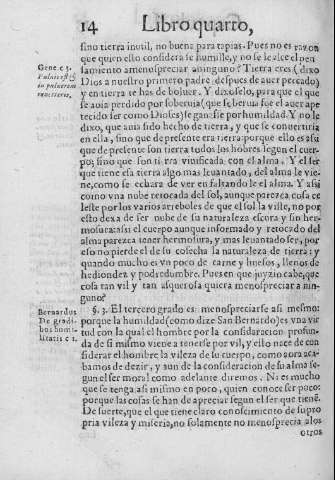 14 Libro quarto,
sino tierra inutil, no buena para tapias. Pues no es razon
que quien esto considera se humille, y no se le alce el pen
samiento a menospreciar a ninguno? Tierra eres (dixo
Dios a nuestro primero padre despues de auer pecado)
y en tierra te has de boluer. Y dixoselo, para que el que
se auia perdido por soberuia (que soberuia fue el auer ape
tecido ser como Dioses) se ganasse por humildad. Y no le
dixo, que auia sido hecho de tierra, y que se conuertiria
en ella, sino que de presente era tierra: porque ello es assi
que de presente son tierra todos los hõbres segun el cuer
po; sino que son tierra viuificada con el alma. Y el ser
que tiene esta tierra algo mas leuantado, del alma le vie
ne, como se echara de ver en faltandole el alma. Y assi
como vna nube retocada del sol, aunque parezca cosa ce
leste por los varios arreboles de que el sol la viste, no por
esto dexa de ser nube de su naturaleza escura y sin her
mosura: assi el cuerpo aunque informado y retocado del
alma parezca tener hermosura, y mas leuantado ser, por
esso no pierde el de su cosecha la naturaleza de tierra: y
quando mucho es vn poco de carne y huesos, llenos de
hediondez y podredumbre. Pues en que juyzio cabe, que
cosa tan vil y tan asquerosa quiera menospreciar a nin
guno?
§. 3. El tercero grado es menospreciarse asi mesmo:
porque la humildad (como dize San Bernardo) es vna vir
tud con la qual el hombre por la consideracion profun
da de si mismo viene a tenerse por vil, y esto nace de con
siderar el hombre la vileza de su cuerpo, como aora aca
bamos de dezir, y aun de la consideracion de su alma se
gun el ser moral como adelante diremos. Ni es mucho
que se tenga asi mismo en poco, quien conoce ser poco:
porque las cosas se han de apreciar segun el ser que tienẽ.
De suerte, que el que tiene claro conoscimiento de su pro
pria vileza y miseria, no solamente no menosprecia a los
otros
Gene. c 3.
Puluis es &
in puluerem
reuerteris.
Bernardus
De gradi-
bus humi-
litatis c 1.